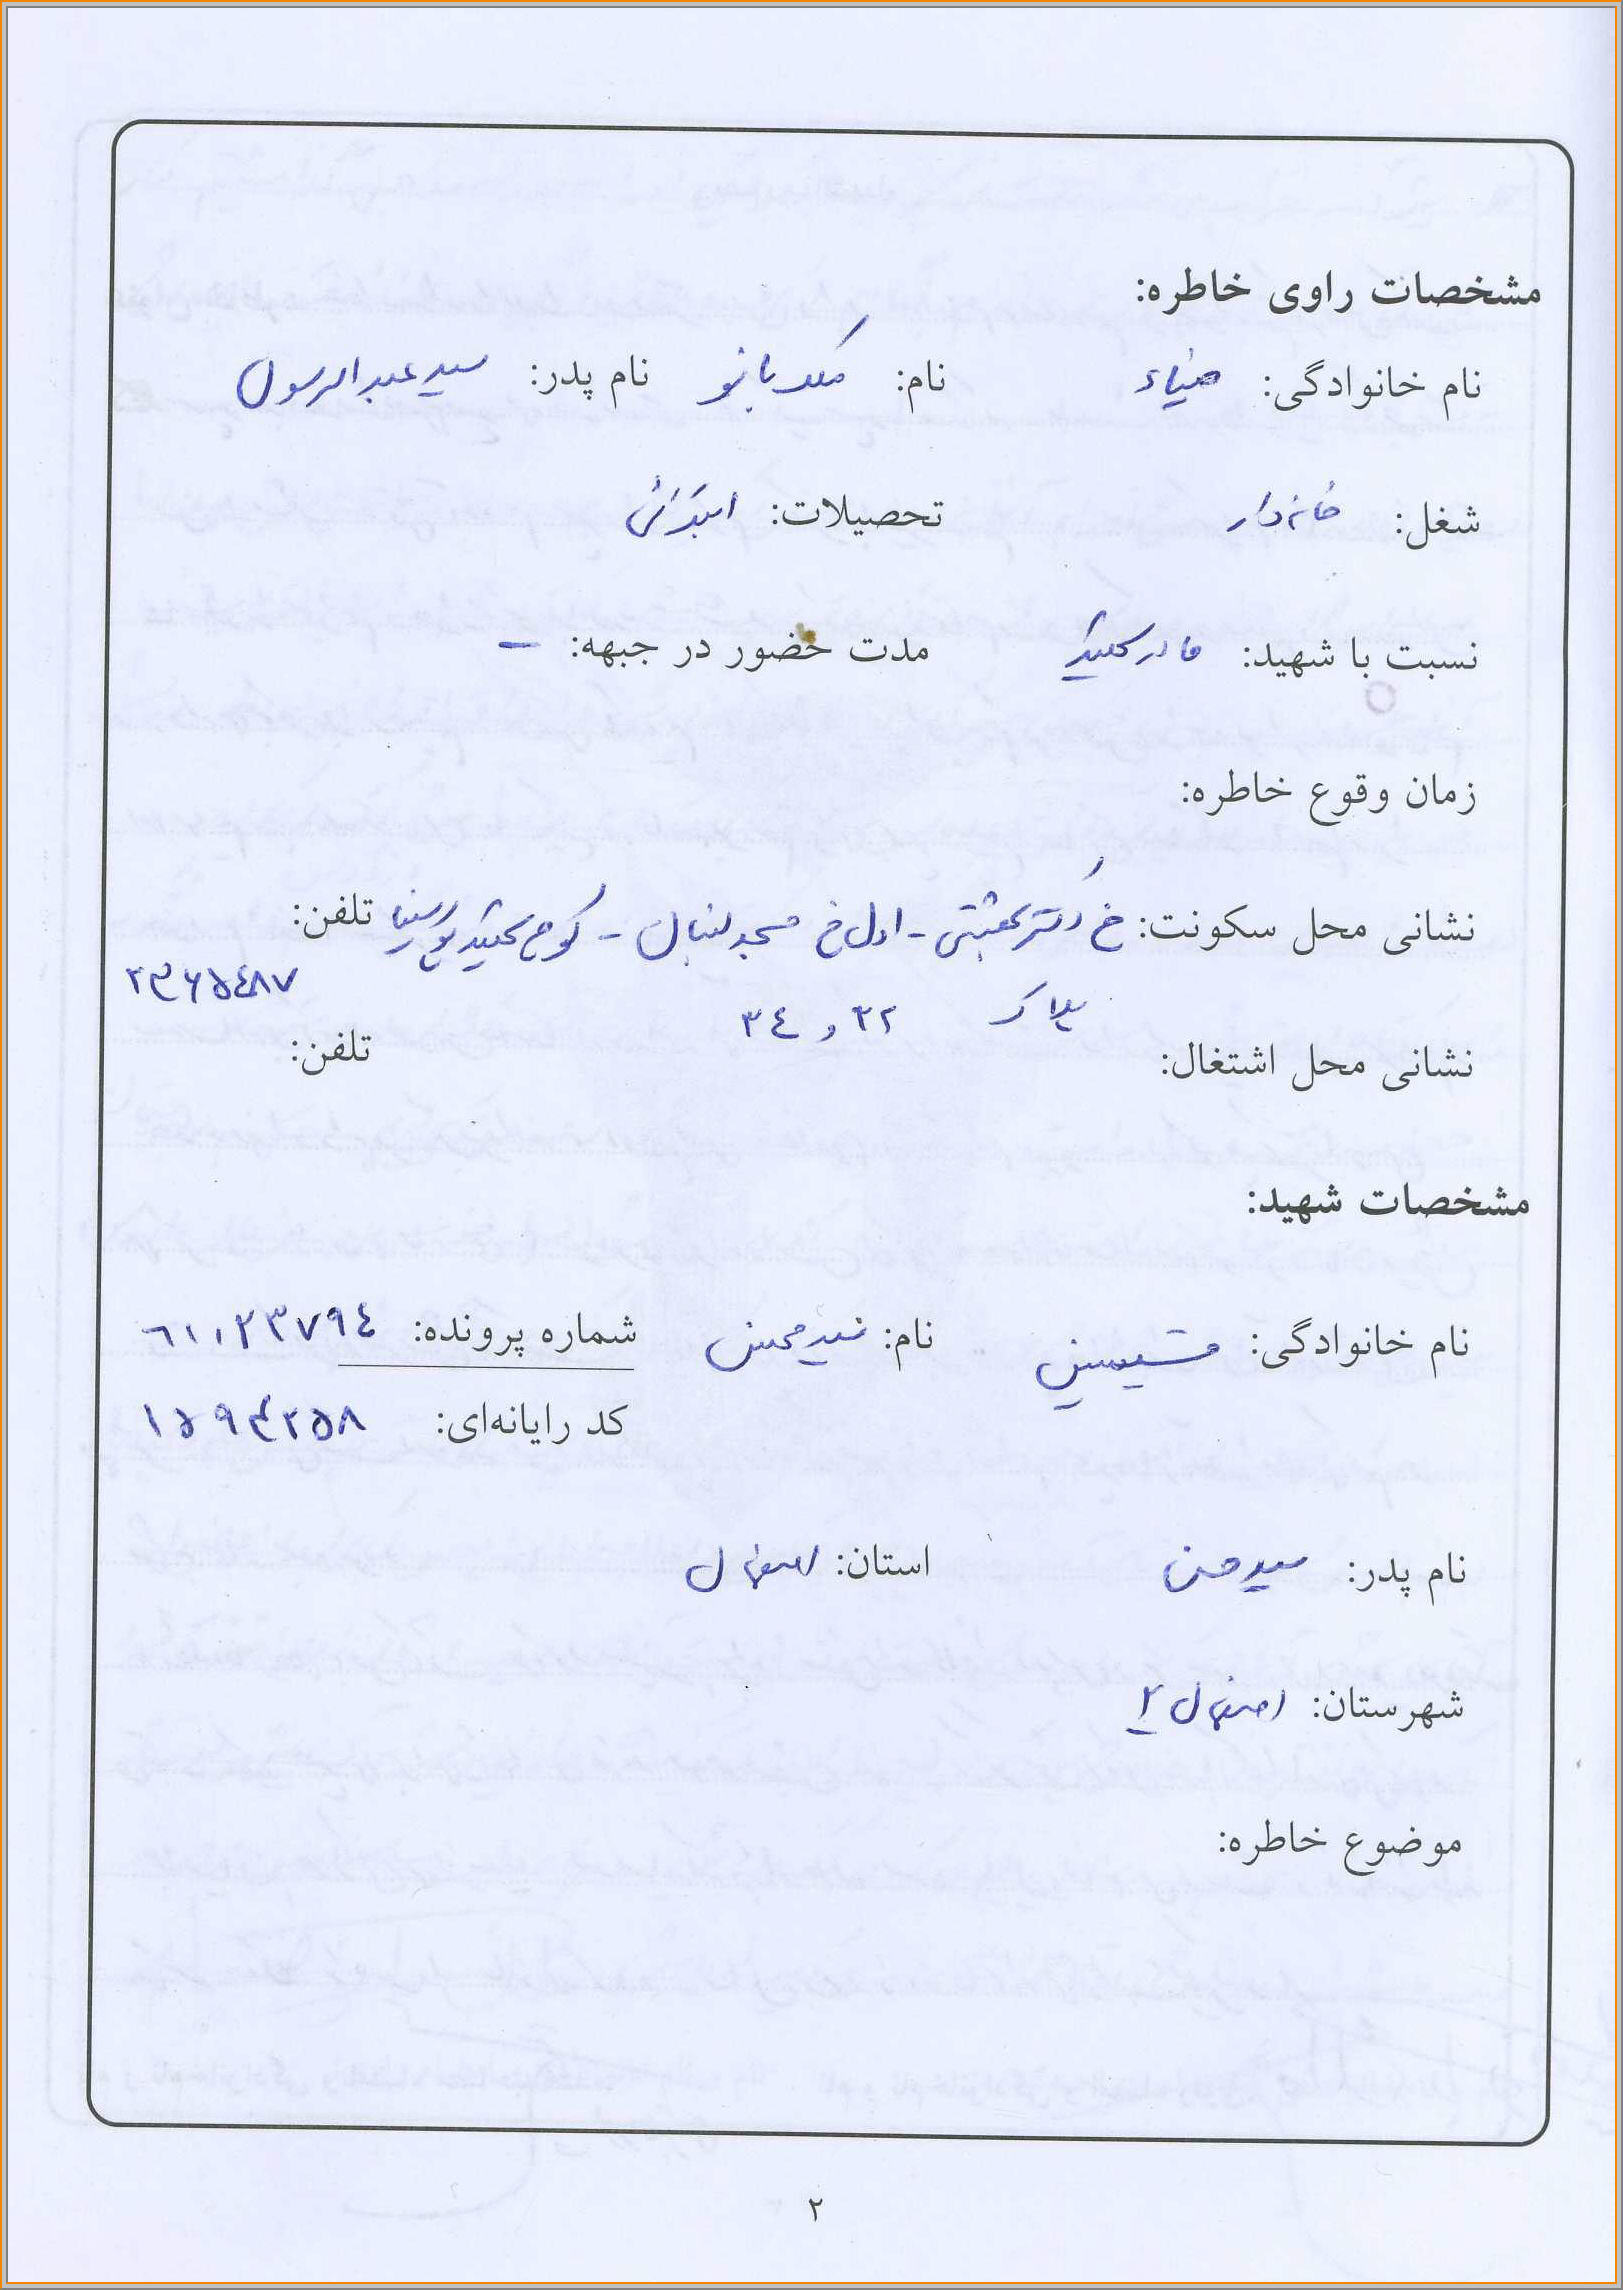 مشخصات راوی خاطره:
نام خانوادگی: ضیاء نام: ملک بانو نام پدر: سید عبدالرسول
شغل: خانه دار تحصیلات: ابتدائی
نسبت با شهید: مادر شهید مدت حضور در جبهه: –
زمان وقوع خاطره:
نشانی محل سکونت: خ دکتر بهشتی - اول خ مسجد لنبان - کوچه شهید تلفن:
پلاک ۳۲ و ۳٤ ۲۳۶۵٤۸۷
نشانی محل اشتغال: تلفن:
مشخصات شهید:
نام خانوادگی: نام: سید محسن شماره پرونده: ٦۱۰۲۳۷۹٤
کد رایانه‌ای: ۱۵۹۴۲۵۸
نام پدر: سید حسن استان: اصفهان
شهرستان: اصفهان ۲
موضوع خاطره:
۲